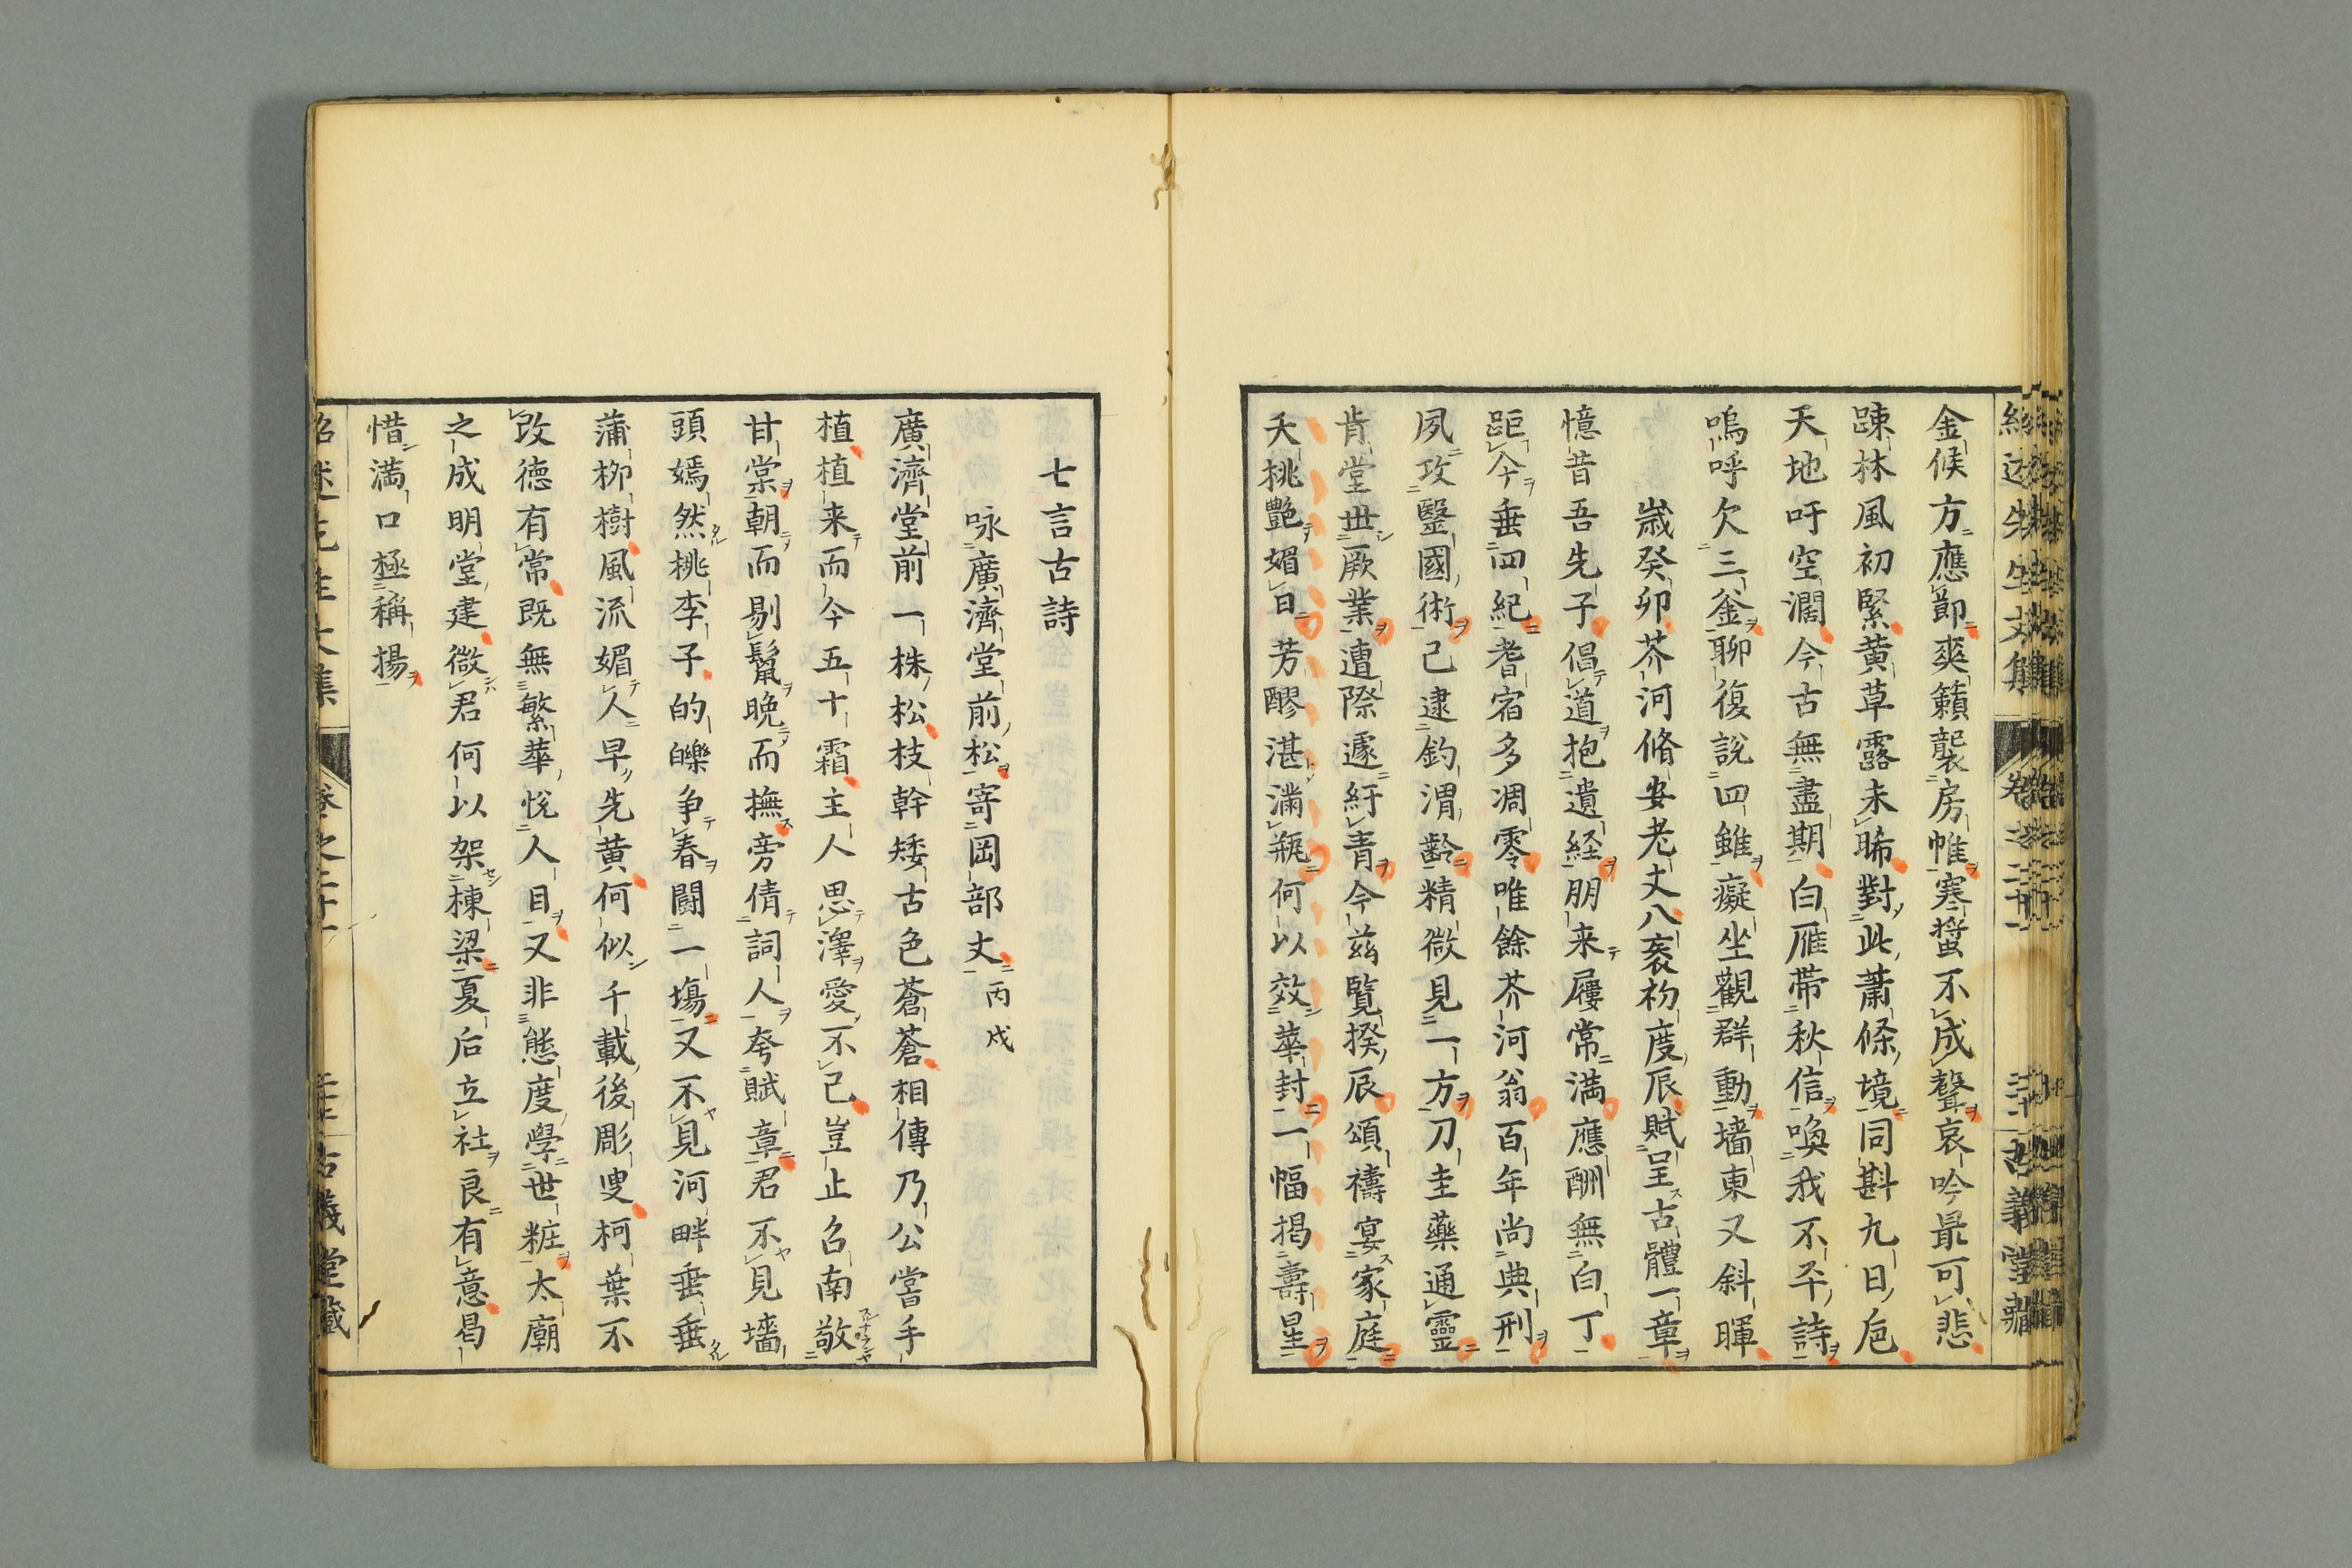 金候方應節爽籟襲房帷寒螿不成聲哀吟最可悲
踈林風初緊黄草露未晞對此蕭條境同斟九日巵
天地吁空濶今古無盡期白雁帯秋信喚我不平詩
嗚呼欠三釜聊復說四雖癡坐觀群動墻東又斜暉
歳癸卯芥河脩安老丈八袠初度辰賦呈古體一章
憶昔吾先子倡道抱遺経朋来屨常満應酬無白丁
距今垂四紀耆宿多凋零唯餘芥河翁百年尚典刑
夙攻醫國術已逮釣渭齢精微見一方刀圭藥通靈
肯堂世厥業遭際遽紆青今茲覧揆辰頌禱宴家庭
夭桃艶媚日芳醪湛満瓶何以效華封一幅掲壽星
七言古詩
咏廣濟堂前松寄岡部丈丙戌
廣濟堂前一株松枝幹矮古色蒼蒼相傳乃公嘗手
植植来而今五十霜主人思澤愛不已豈止召南敬
甘棠朝而剔鬣晩而撫旁倩詞人夸賦章君不見墻
頭嫣然桃李子的皪争春鬪一塲又不見河畔垂垂
蒲柳樹風流媚人早先黄何似千載後彫叟柯葉不
改德有常既無繁華悅人目又非態度學世粧太廟
之成明堂建微君何以架棟梁夏后立社良有意曷
惜満口極稱揚
紹述先生文集 卷之二十一 古義堂藏